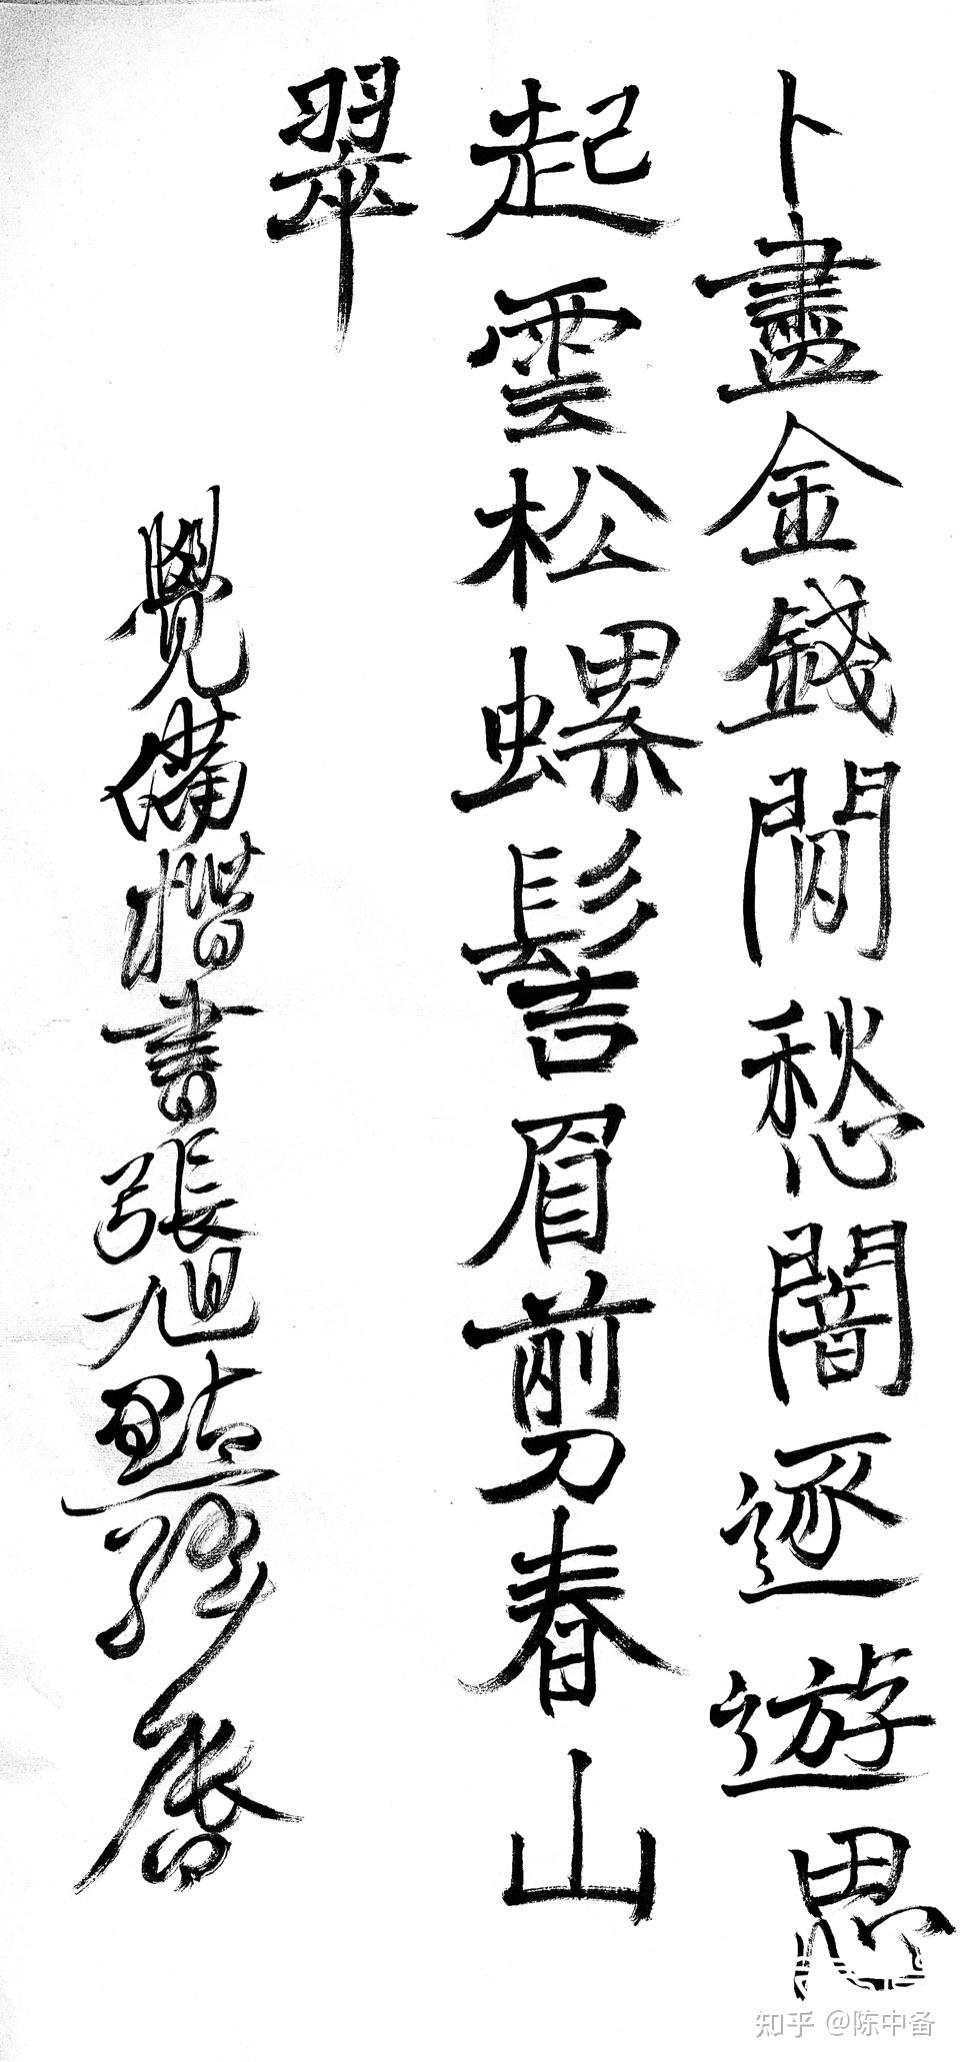 卜盡金錢閒愁闇逐遊思
起雲松螺髻眉剪春山
翠
覺備楷書張旭點絳唇
知乎 @陈中备